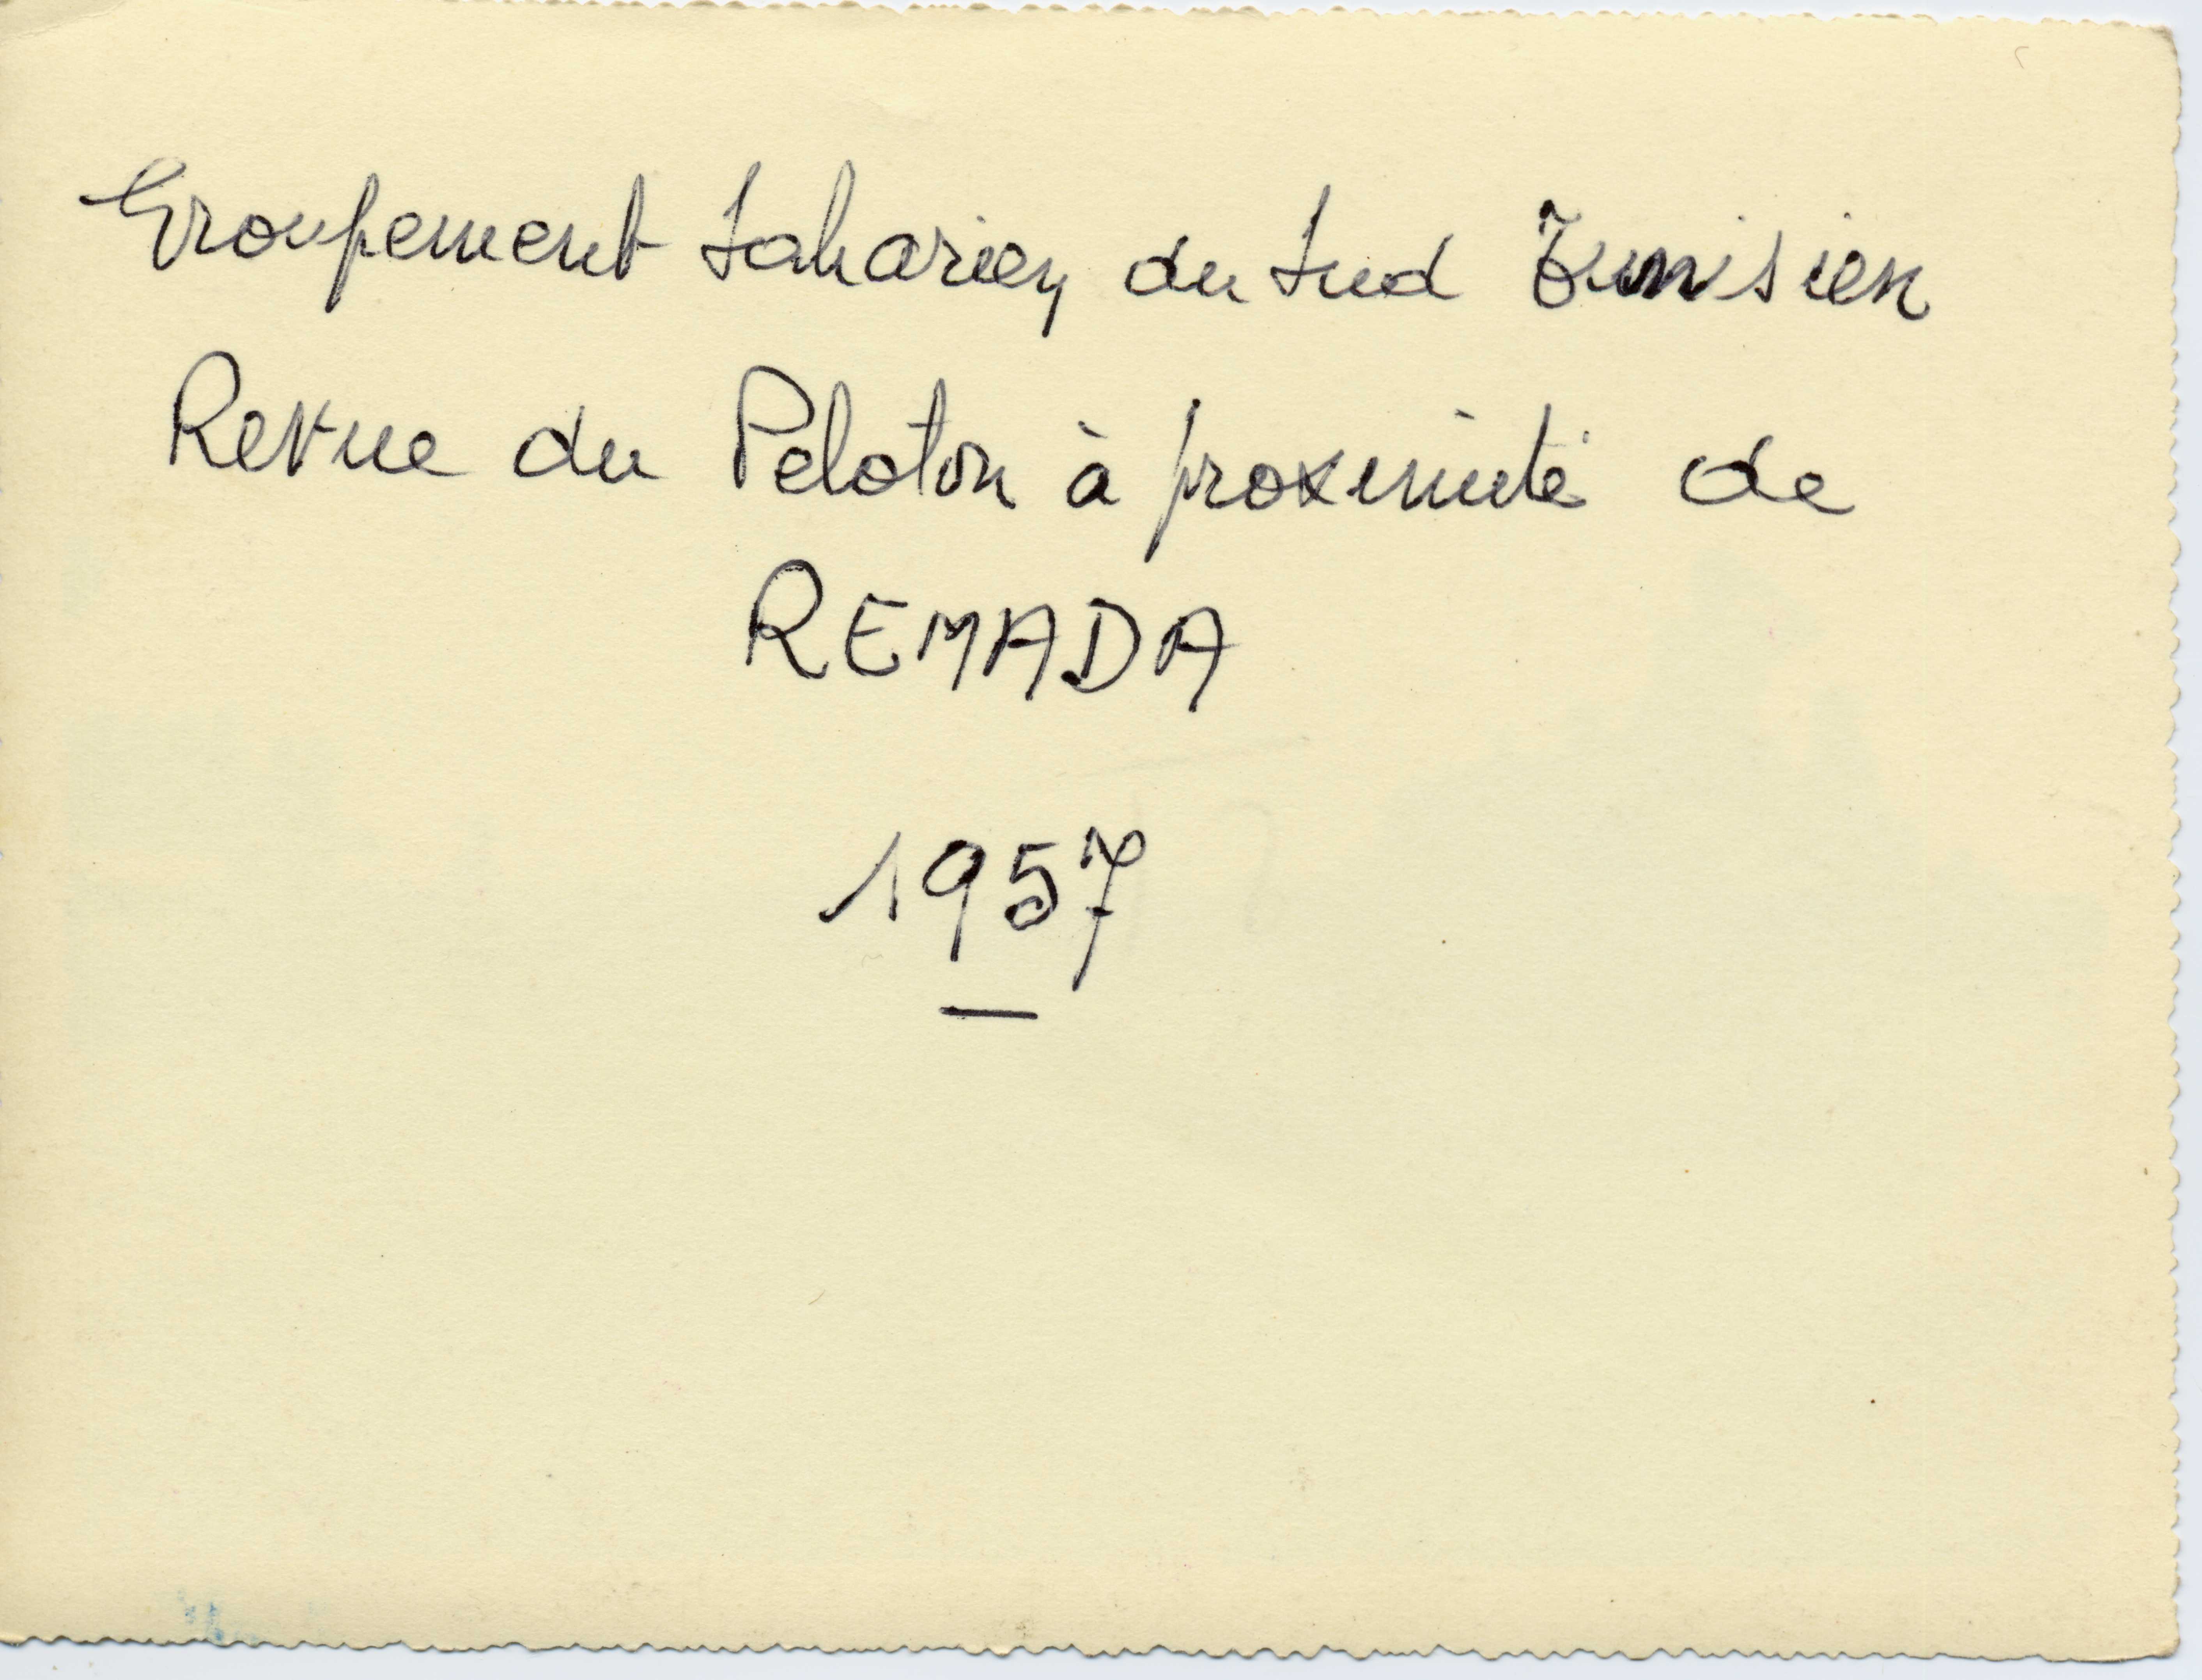 Groupement Saharien du Sud Tunisien
Revue du Peloton à proximité de
REMADA
1957